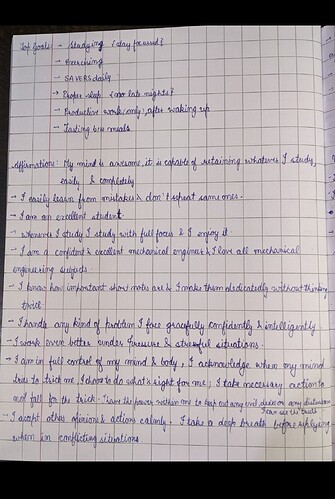 Top Goals: - Studying {day focused}
- Exercising
- SAVERS daily
- Proper sleep {no late nights}
- Productive work only, after waking up
- Tasting best meals
Affirmations: My mind is awesome, it is capable of retaining whatever I study,
easily & completely
- I easily learn from mistakes & don't repeat same ones.
- I am an excellent student.
- whenever I study I study with full focus & I enjoy it
- I am a confident & excellent mechanical engineer & I love all mechanical
engineering subjects
- I know how important short notes are & I make them dedicatedly without thinking
twice.
- I handle any kind of problem I face gracefully confidently & intelligently.
- I work even better under pressure & stressful situations.
- I am in full control of my mind & body, I acknowledge when my mind
tries to trick me, I choose to do what's right for me, I take necessary action to
not fall for the trick. I have the power within me to keep out any evil desire or any disturbance
I can see the truth
- I accept other opinions & actions calmly. I take a deep breath before replying
when in conflicting situations